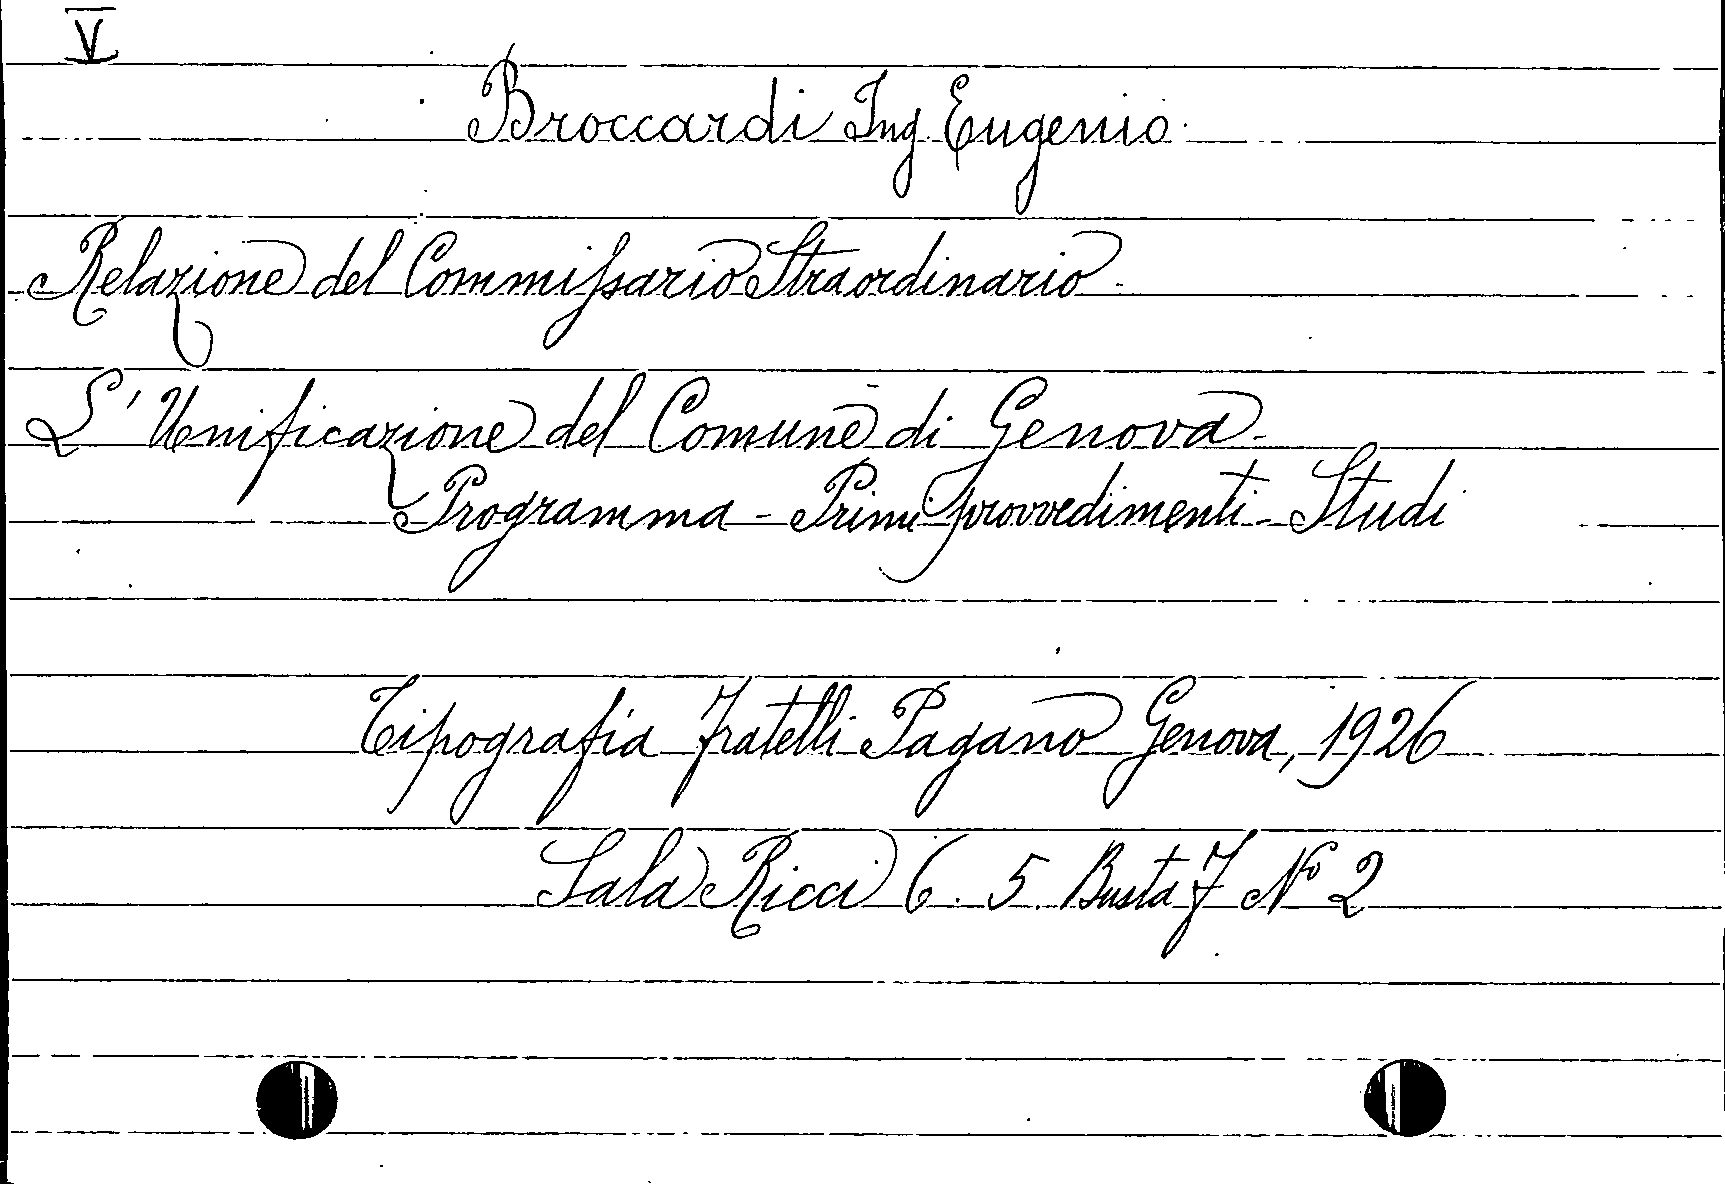 V
Broccardi Ing. Eugenio.
Relazione del Commissario Straordinario.
L'Unificazione del Comune di Genova.
Programma - Primi provvedimenti - Studi
Tipografia Fratelli Pagano Genova, 1926
Sala Ricci 6. 5. Busta 7 N° 2